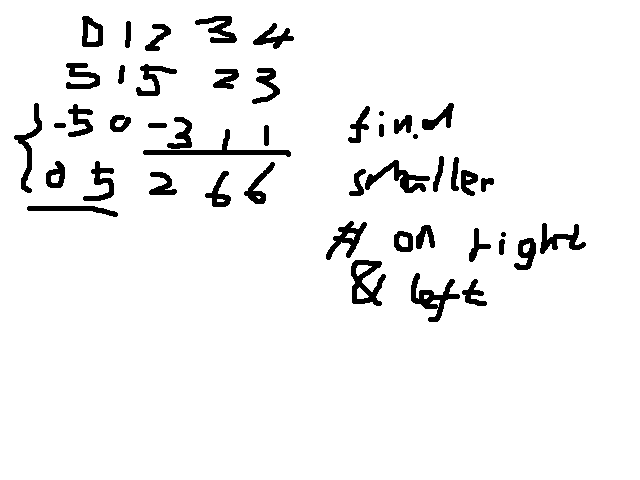 0 1 2 3 4
5 1 5 2 3
-5 0 -3 1 1
0 5 2 6 6
find
smaller
# on right
& left